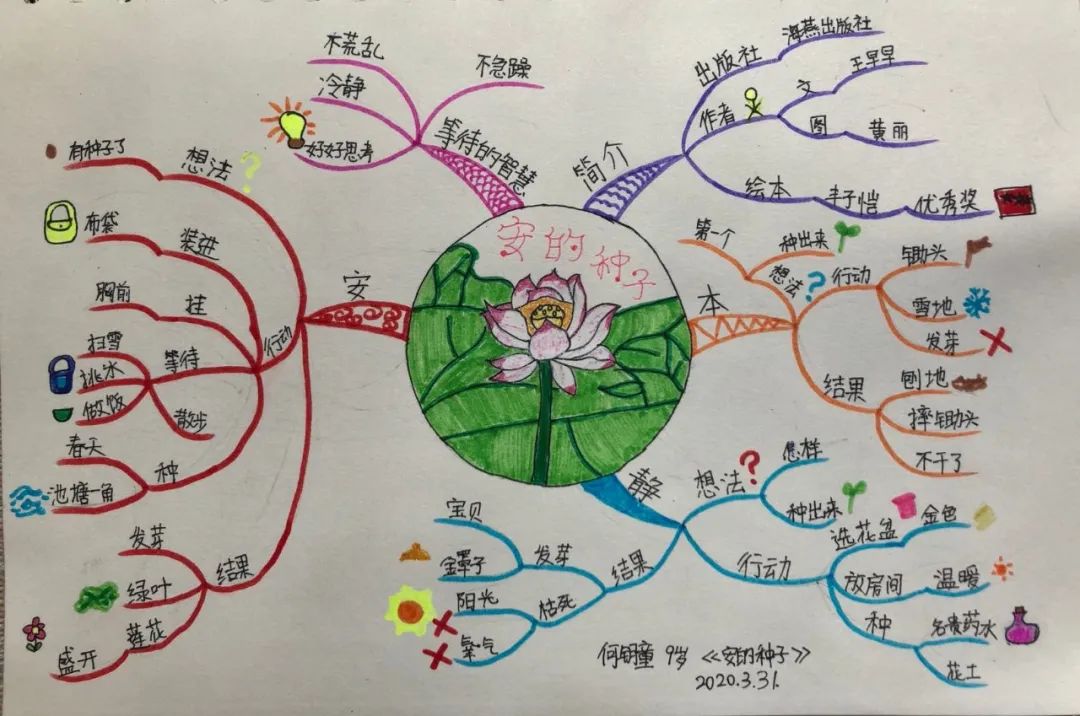 安的种子
简介
出版社
海燕出版社
作者
文
王早早
图
黄丽
绘本
丰子恺
优秀奖
本
想法?
第一个
种出来
行动
锄头
雪地
发芽
结果
刨地
摔锄头
不干了
静
想法?
怎样
种出来
行动
选花盆
金色
放房间
温暖
种
名贵药水
花土
结果
发芽
宝贝
金罩子
枯死
阳光
氧气
安
想法
?
有种子了
行动
装进
布袋
挂
胸前
等待
扫雪
挑水
做饭
散步
种
春天
池塘一角
结果
发芽
绿叶
莲花
盛开
等待的智慧
不荒乱
冷静
好好思考
不急躁
何玥童 9岁 《安的种子》
2020.3.31.